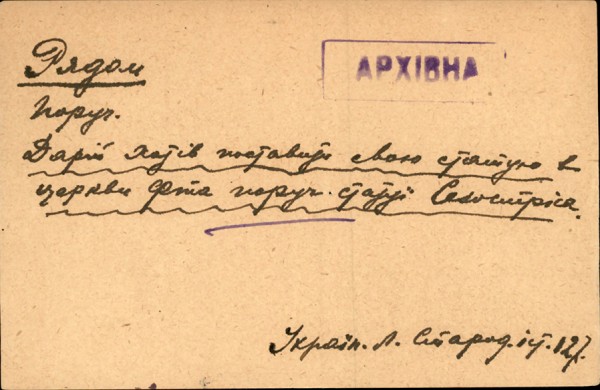 Рядом
АРХІВНА
Поруч.
Дарій хотів поставити свою статую в
церкви Фта поруч статуї Сезостріса.
Україн. Л. Старод. іст. 127.